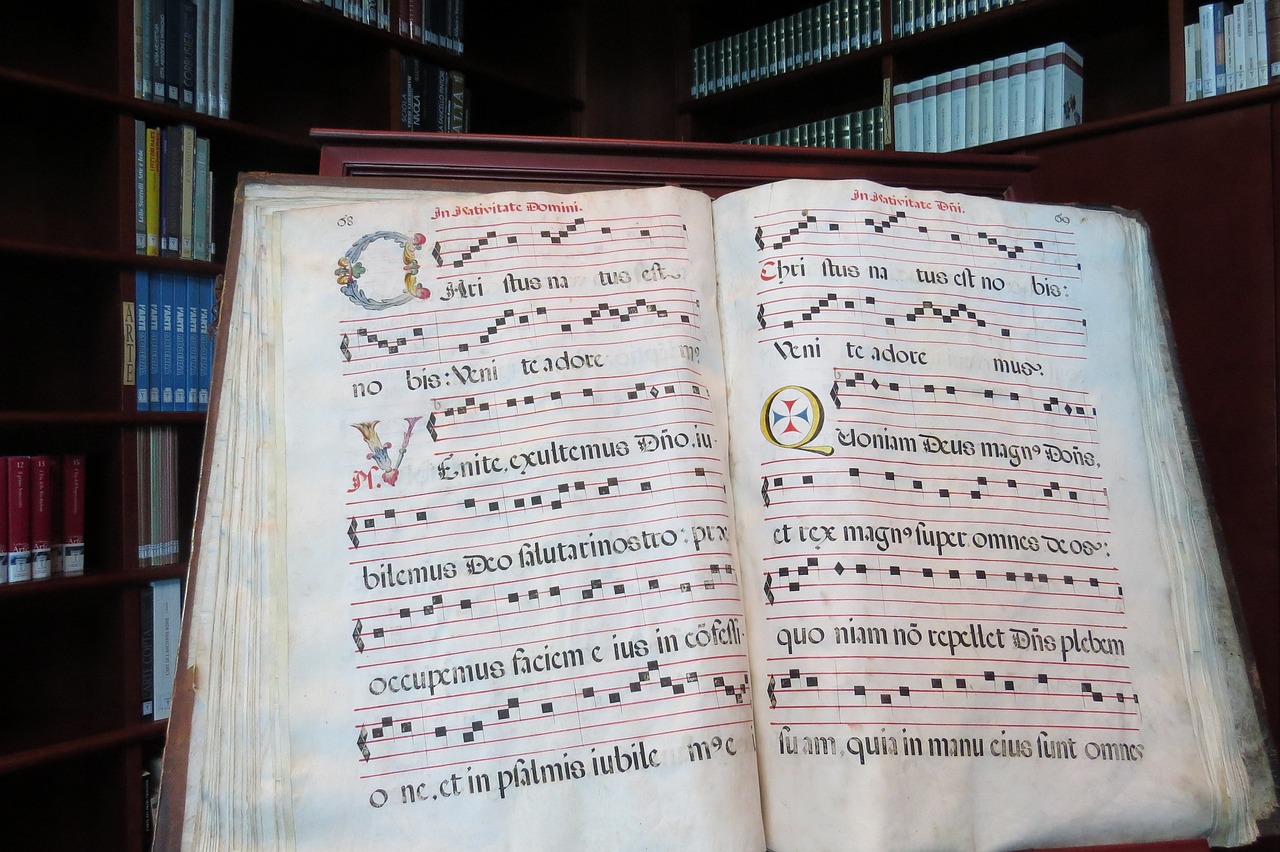 68
In Nativitate Domini.
CHri stus na tus est
no bis: Veni te adore m9
Ps. VEnite, exultemus Dño. iu-
bilemus Deo salutari nostro: præ
occupemus faciem e ius in cōfessi-
o ne, et in psalmis iubile m9 e
In Nativitate Dñi.
69
Chri stus na tus est no bis:
Veni te adore mus.
QUoniam Deus magn9 Doñs,
et rex magn9 super omnes deos;
quo niam nō repellet Dñs plebem
su am, quia in manu eius sunt omnes
ARTE
L'ARTE
L'ARTE
L'ARTE
L'ARTE
L'ARTE